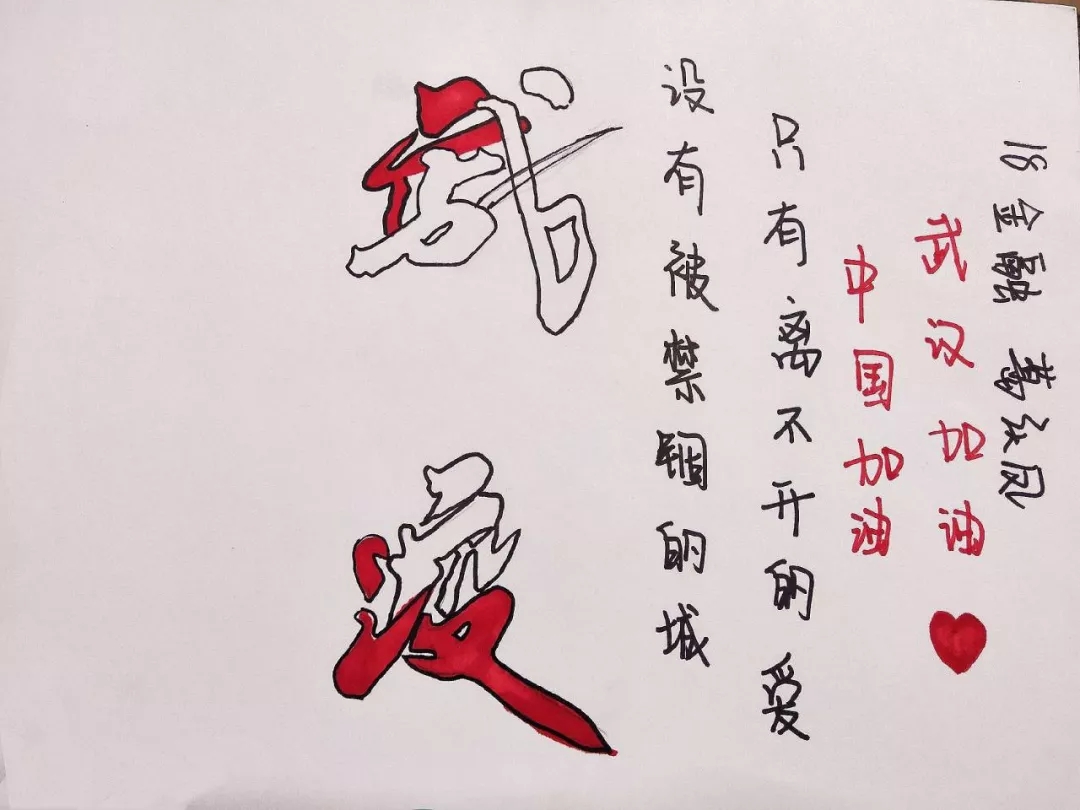 没有被禁锢的城
只有离不开的爱
中国加油
武汉加油
18金融 红凤